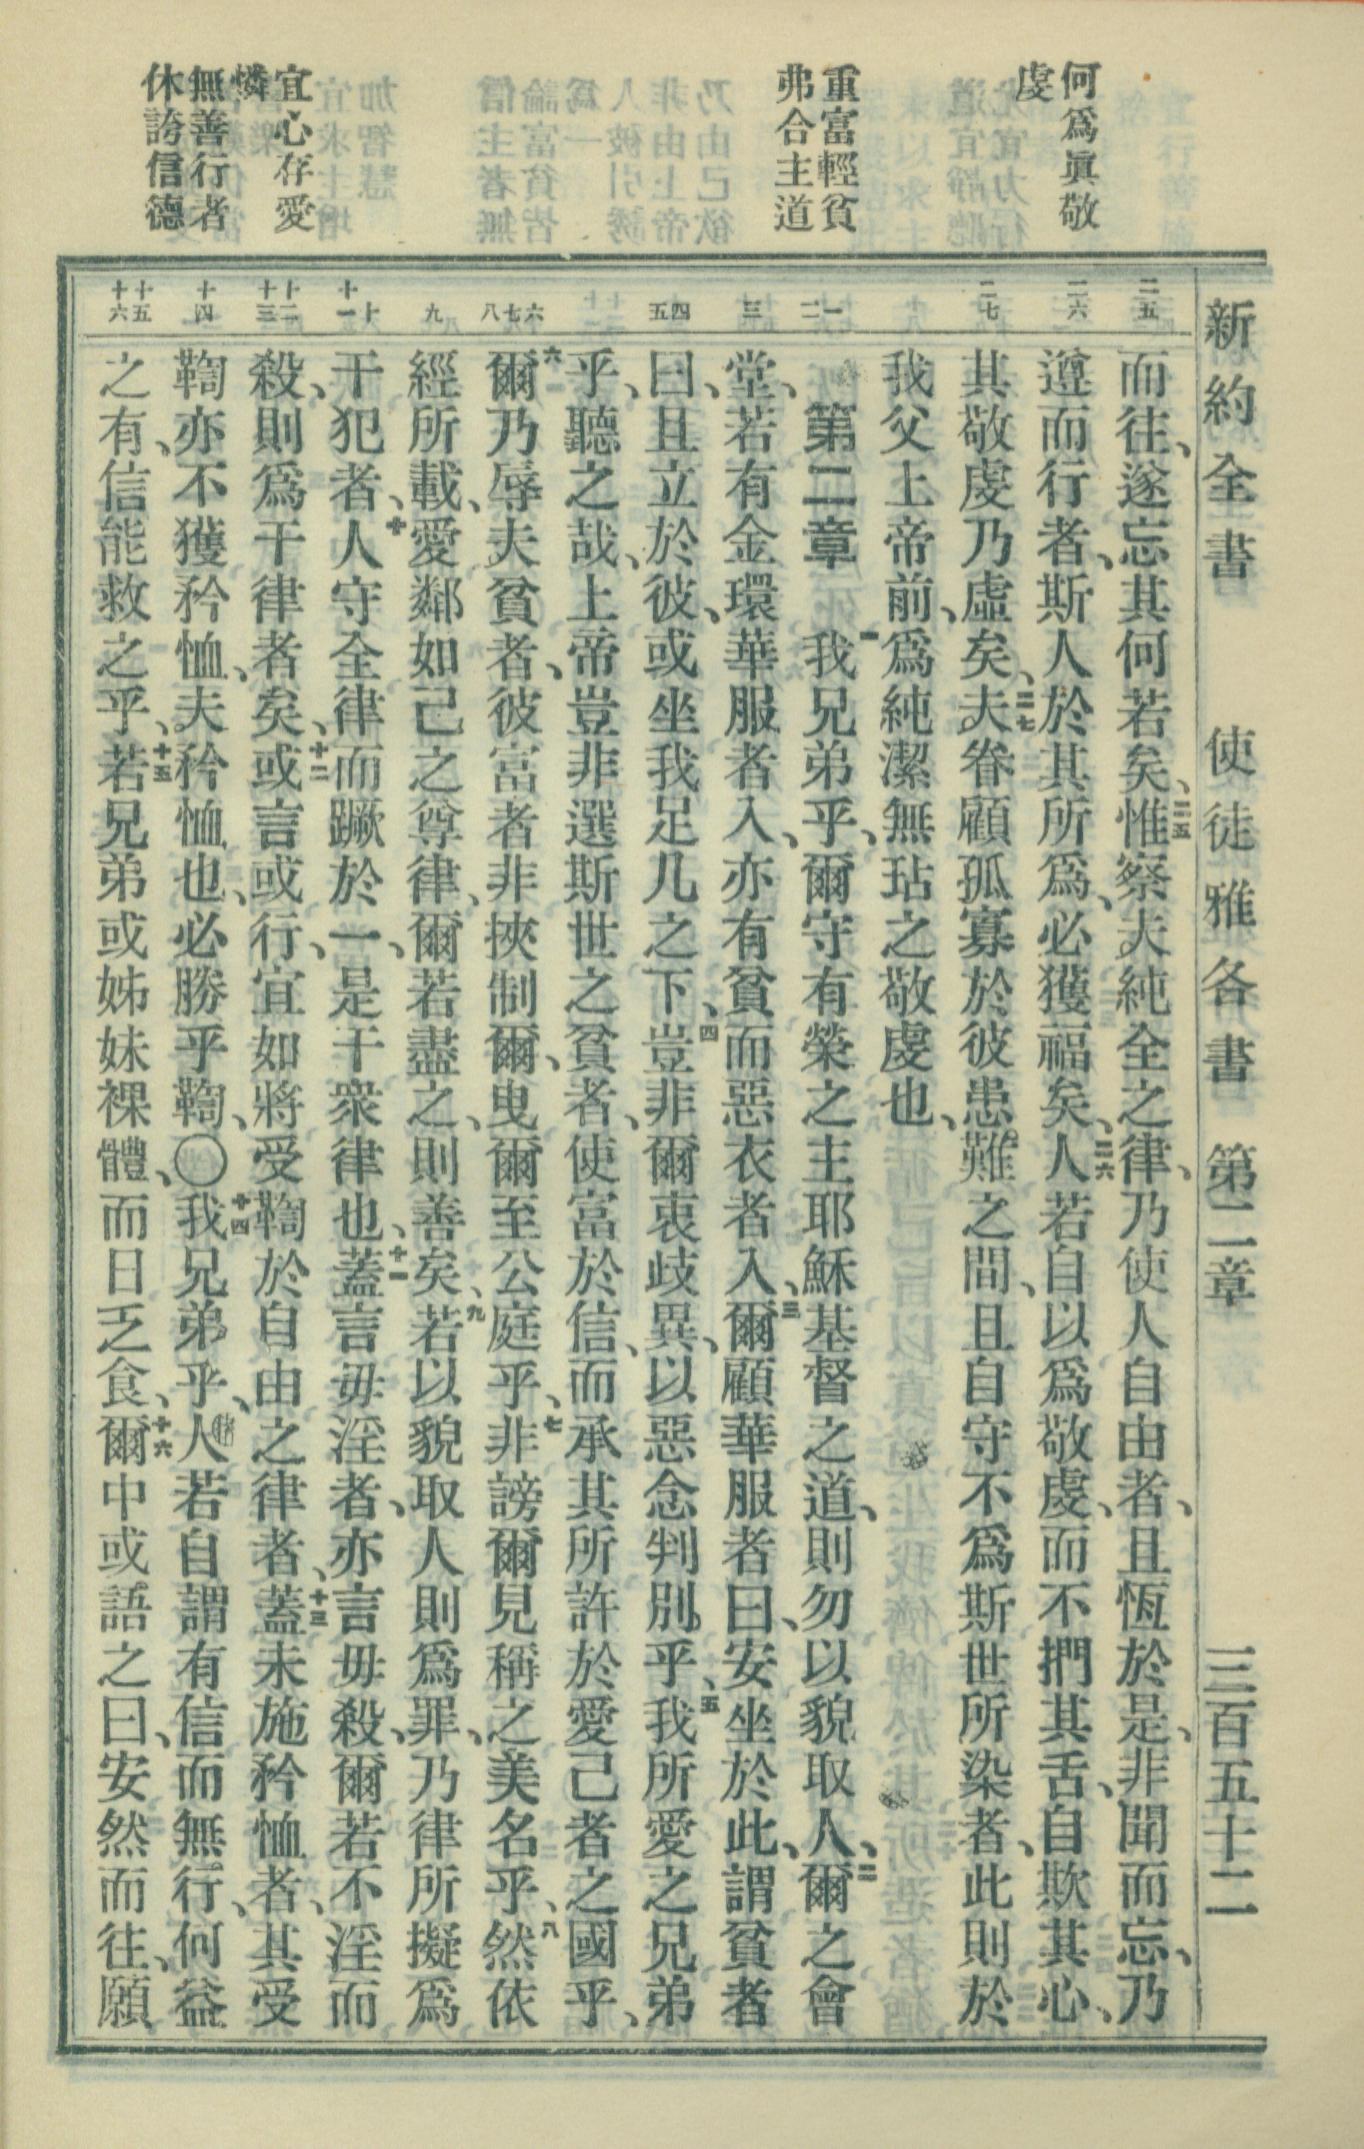 新約全書 使徒雅各書 第二章 三百五十二
何爲眞敬
虔
重富輕貧
弗合主道
宜心存愛
憐
無善行者
休誇信德
二五
二六
二七
一
二
三
四
五
六
七
八
九
十
十一
十二
十三
十四
十五
十六
而往、遂忘其何若矣、二五惟察夫純全之律、乃使人自由者、且恆於是、非聞而忘、乃
遵而行者、斯人於其所爲、必獲福矣、二六人若自以爲敬虔、而不捫其舌、自欺其心、
其敬虔乃虛矣、二七夫眷顧孤寡於彼患難之間、且自守不爲斯世所染者、此則於
我父上帝前、爲純潔無玷之敬虔也、
第二章 一我兄弟乎、爾守有榮之主耶穌基督之道、則勿以貌取人、二爾之會
堂、若有金環華服者入、亦有貧而惡衣者入、三爾顧華服者曰、安坐於此、謂貧者
曰、且立於彼、或坐我足几之下、四豈非爾衷歧異、以惡念判別乎、五我所愛之兄弟
乎、聽之哉、上帝豈非選斯世之貧者、使富於信、而承其所許於愛己者之國乎、
六爾乃辱夫貧者、彼富者非挾制爾、曳爾至公庭乎、七非謗爾見稱之美名乎、八然依
經所載、愛鄰如己之尊律、爾若盡之、則善矣、九若以貌取人則爲罪、乃律所擬爲
干犯者、十人守全律而蹶於一、是干衆律也、十一蓋言毋淫者、亦言毋殺、爾若不淫而
殺、則爲干律者矣、十二或言或行、宜如將受鞫於自由之律者、十三蓋未施矜恤者、其受
鞫亦不獲矜恤、夫矜恤也、必勝乎鞫、〇十四我兄弟乎、人若自謂有信而無行、何益
之有、信能救之乎、十五若兄弟或姊妹裸體、而日乏食、十六爾中或語之曰、安然而往、願